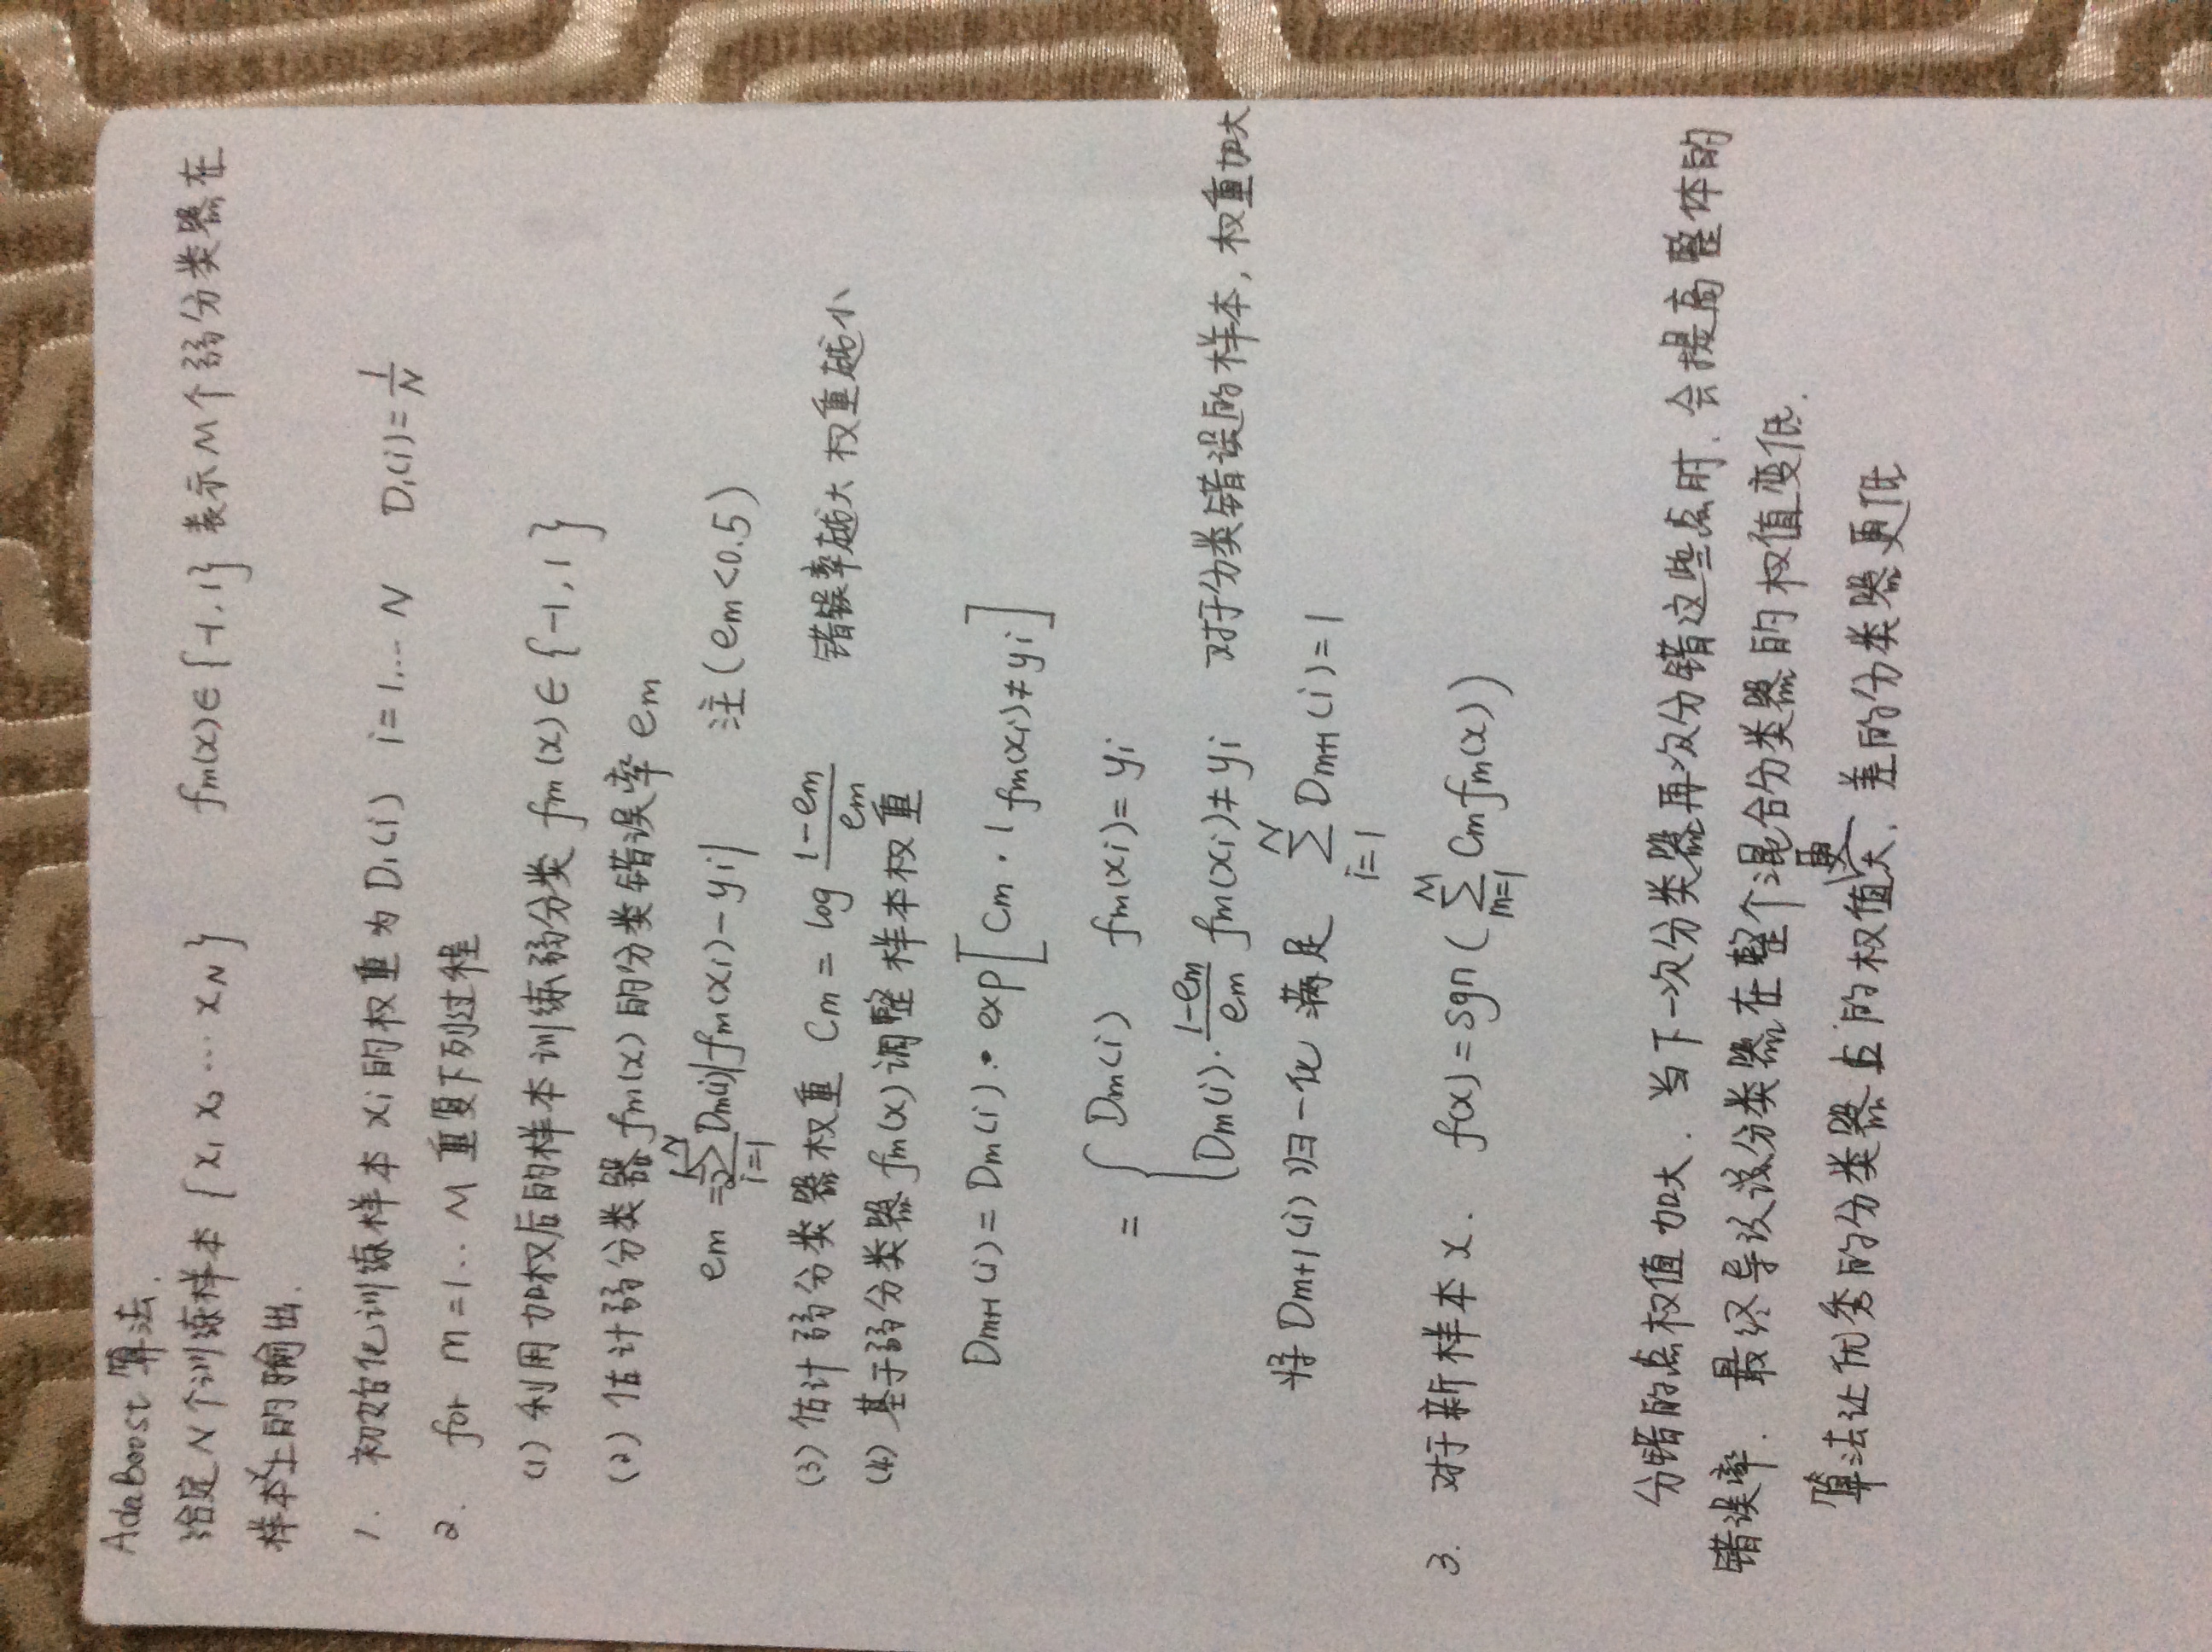 AdaBoost 算法.
给定N个训练样本 {x₁ x₂ ... x_N} f_m(x)∈{-1,1} 表示M个弱分类器在
样本上的输出.
1. 初始化训练样本 xᵢ的权重为 D₁(i) i=1...N D₁(i)=1/N
2. for m=1..M 重复下列过程
(1) 利用加权后的样本训练弱分类 f_m(x)∈{-1,1}
(2) 估计弱分类器f_m(x)的分类错误率 e_m
e_m = ½∑_{i=1}^{N} D_m(i)|f_m(xᵢ)-yᵢ| 注(e_m<0.5)
(3) 估计弱分类器权重 C_m = log (1-e_m)/e_m 错误率越大权重越小
(4) 基于弱分类器 f_m(x)调整样本权重
D_{m+1}(i) = D_m(i)·exp[C_m·1 f_m(xᵢ)≠yᵢ]
= { D_m(i) f_m(xᵢ)=yᵢ
D_m(i)·(1-e_m)/e_m f_m(xᵢ)≠yᵢ 对于分类错误的样本,权重加大
将 D_{m+1}(i) 归一化 满足 ∑_{i=1}^{N} D_{m+1}(i)=1
3. 对于新样本 x. f(x)=sgn(∑_{m=1}^{M} C_m f_m(x))
分错的点权值加大. 当下一次分类器再次分错这些点时. 会提高整体的
错误率. 最终导致该分类器在整个混合分类器的权值变低.
算法让优秀的分类器占的权值更大. 差的分类器更低